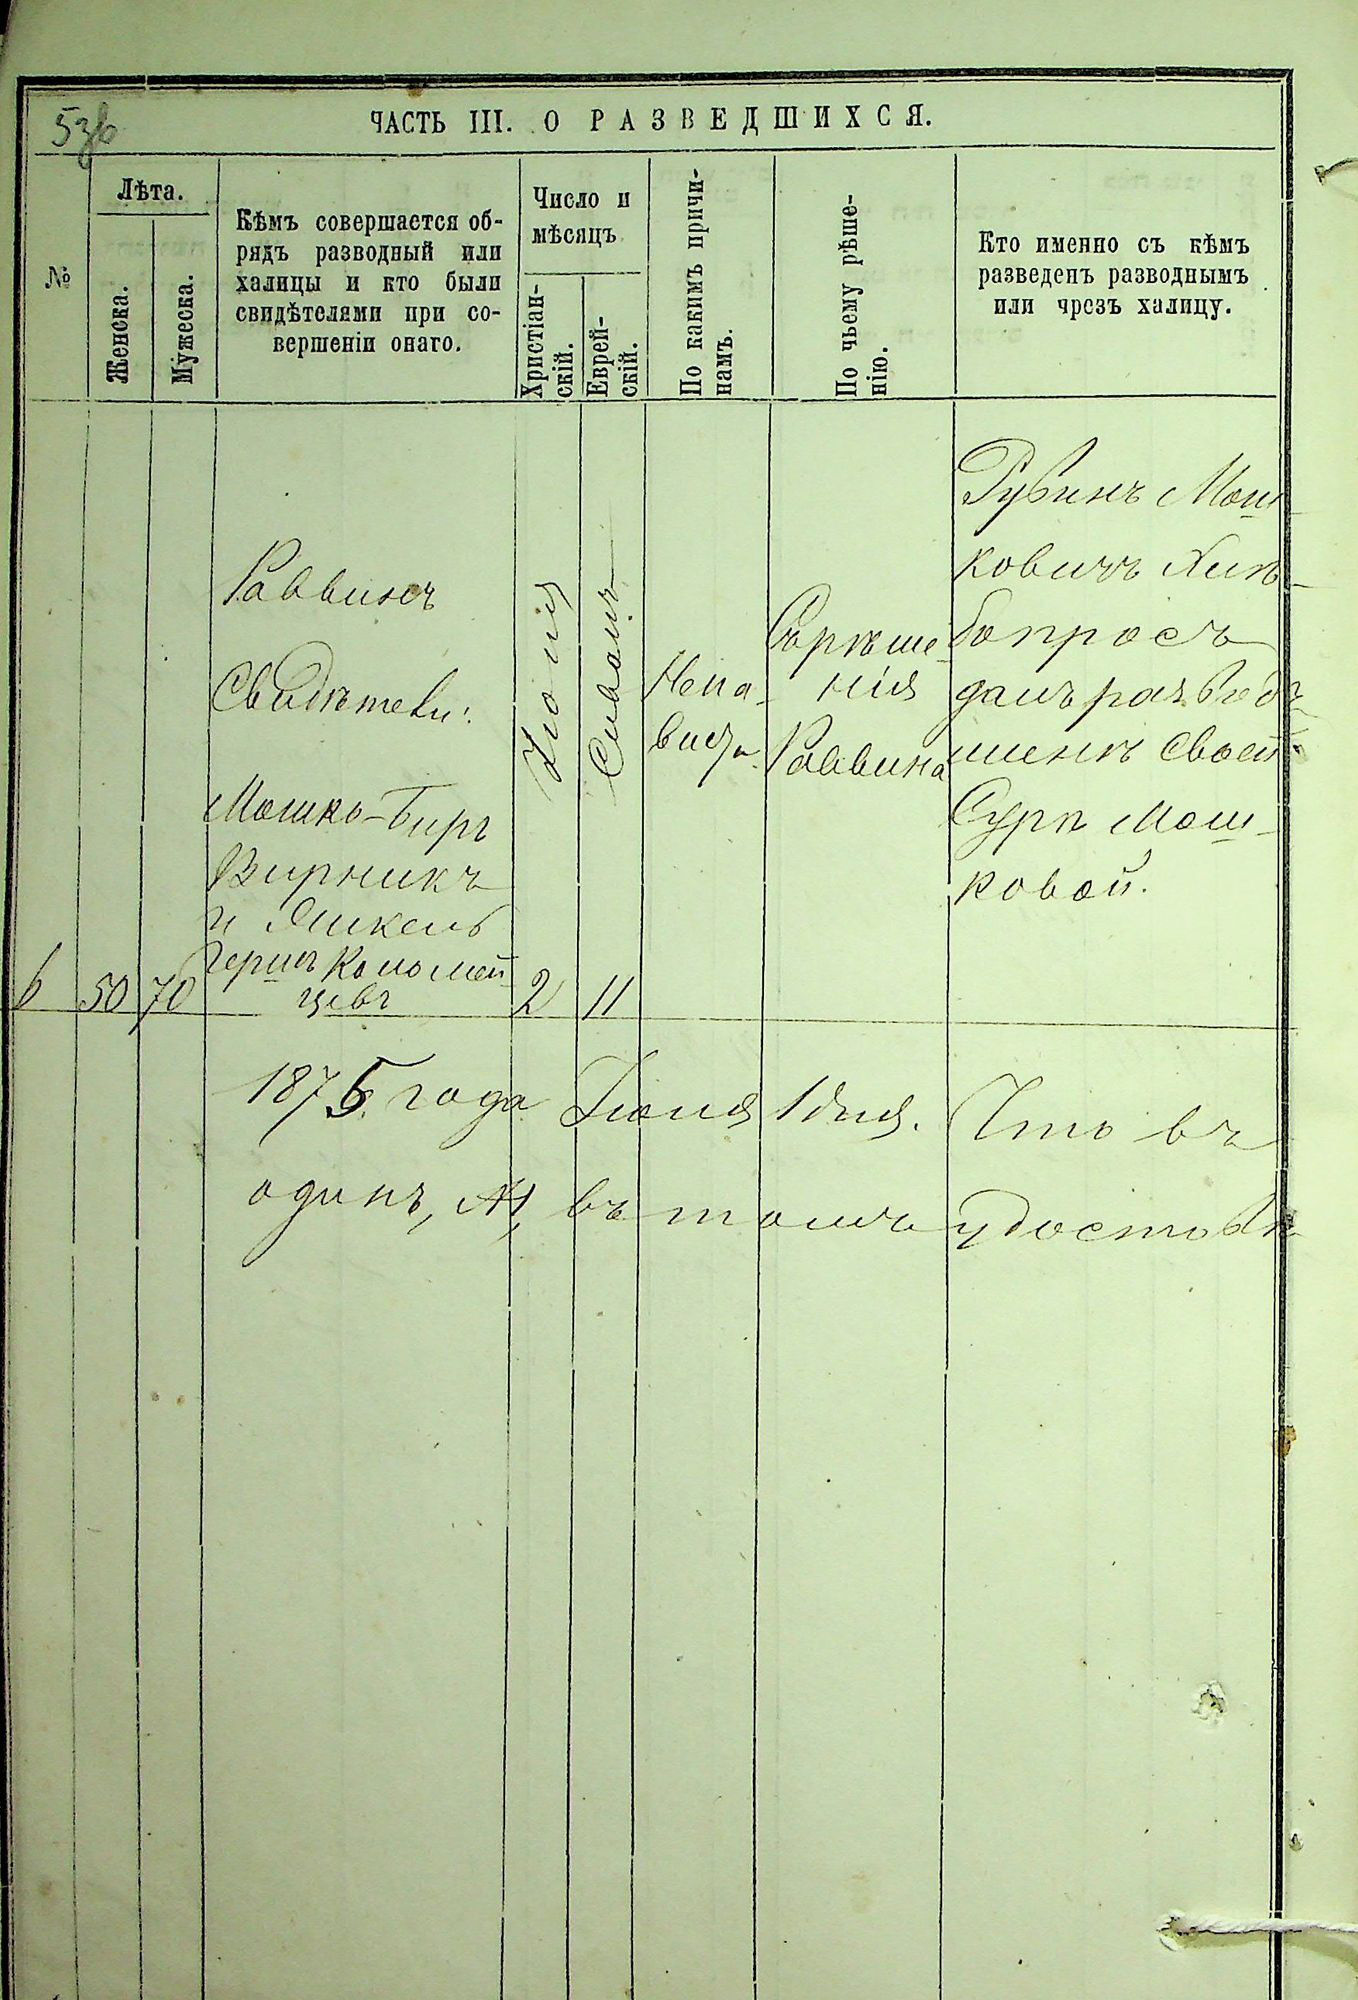 ЧАСТЬ III. О РАЗВЕДШИХСЯ.
№
Лѣта.
Женска.
Мужеска.
Кѣмъ совершается об-
рядъ разводный или
халицы и кто были
свидѣтелями при со-
вершеніи онаго.
Число и
мѣсяцъ
Христіан-
скій.
Еврей-
скій.
По какимъ причи-
намъ.
По чьему рѣше-
нію.
Кто именно съ кѣмъ
разведенъ разводнымъ
или чрезъ халицу.
6
50
70
Раввинъ
Свидѣтели:
Мошко-Беръ
Вирникъ
и Янкель
Гершъ Коломей
цевъ
Іюня
2
Сиванъ
11
Нена-
висти
Съ рѣше-
нія
Раввина
Рубинъ Мош-
ковичъ Хлѣ-
бопросъ
далъ разводъ
женѣ своей
Сурѣ Мош-
ковой.
1875 года Іюня 1 дня. Что въ
одинъ, №1, въ томъ удостовѣ